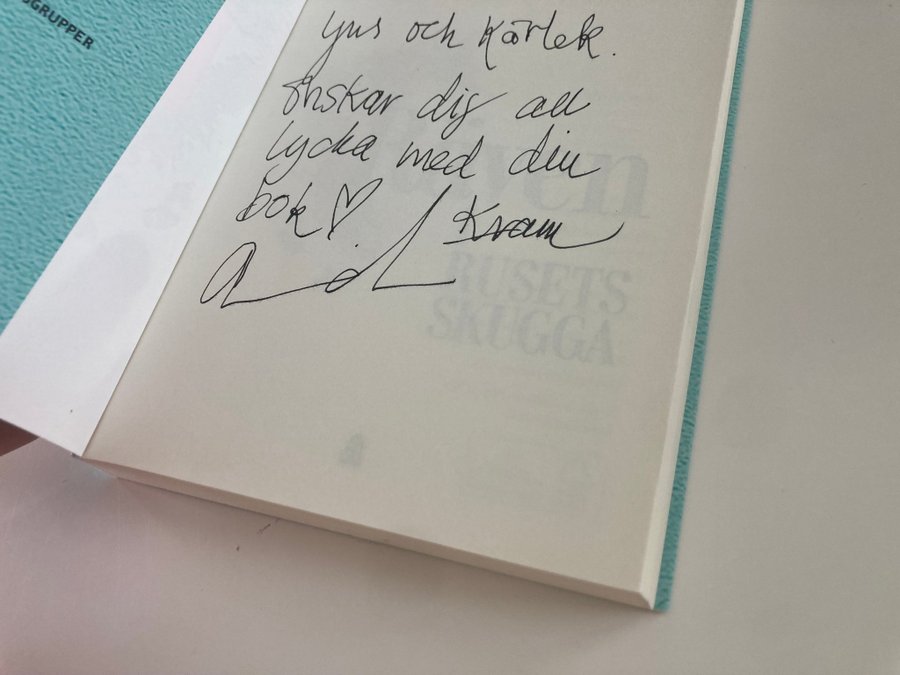 GRUPPER
ljus och kärlek.
önskar dig all
lycka med din
bok ♡. Kram
RUSETS
SKUGGA